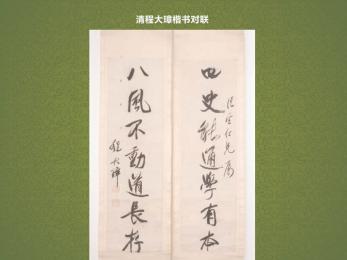 清程大璋楷书对联
四史能通学有本
八風不動道長存
程大璋